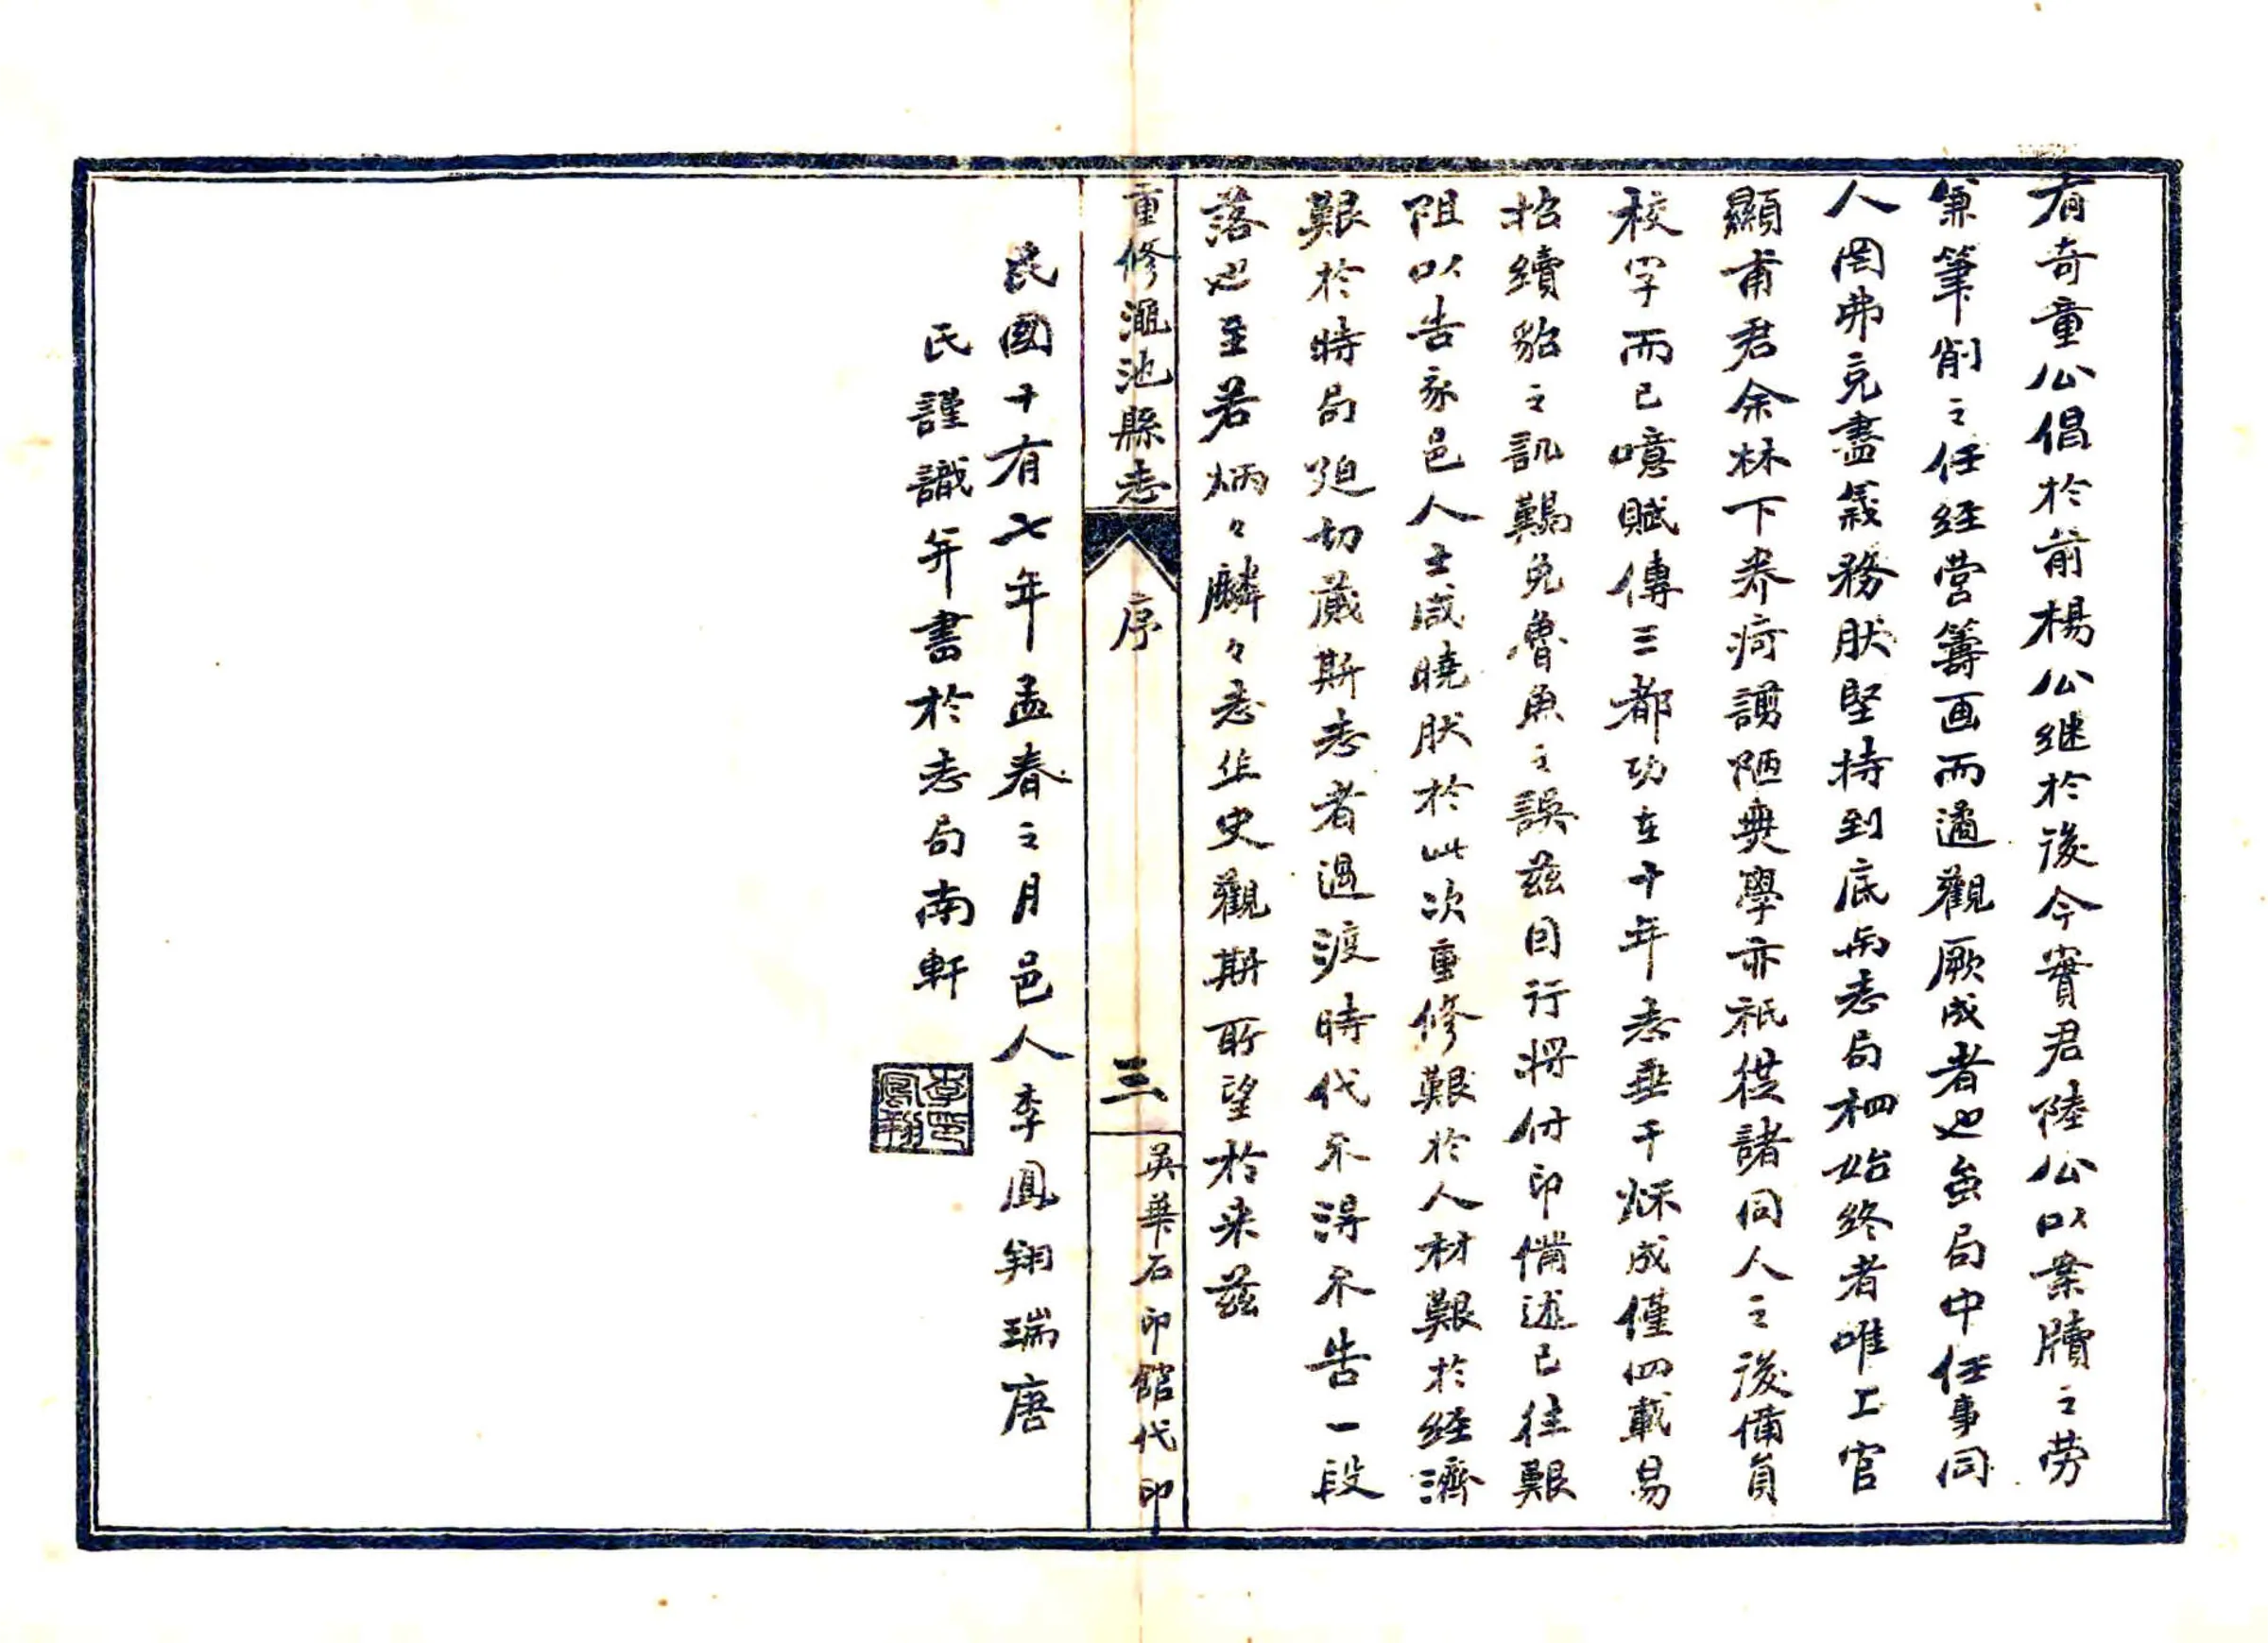 有奇童公倡於前楊公継於後今實君陸公以案牘之劳
兼筆削之任経営籌画而遹觀厥成者也至局中任事同
人罔弗克盡義務肰堅持到底與志局相始終者唯工官
顯甫君余林下养疴謭陋無學亦祇従諸同人之後備員
校字而已噫賦傳三都功在十年志垂千秌成僅四載易
招續貂之訊難免魯魚之誤茲目行將付印備述已往艱
阻以告我邑人士咸曉肰於此次重修艱於人材艱於経濟
艱於時局廹切蕆斯志者過渡時代不得不告一段
落也至若炳々麟々志作史觀斯所望於来茲
重修澠池縣志
序
三
英華石印館代印
民國十有七年孟春之月邑人李鳳翔瑞唐
氏謹識并書於志局南軒
李鳳翔印